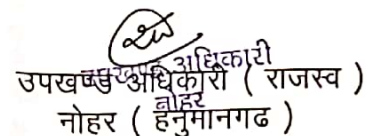 उपखण्ड अधिकारी
नोहर
उपखण्ड अधिकारी ( राजस्व )
नोहर ( हनुमानगढ )